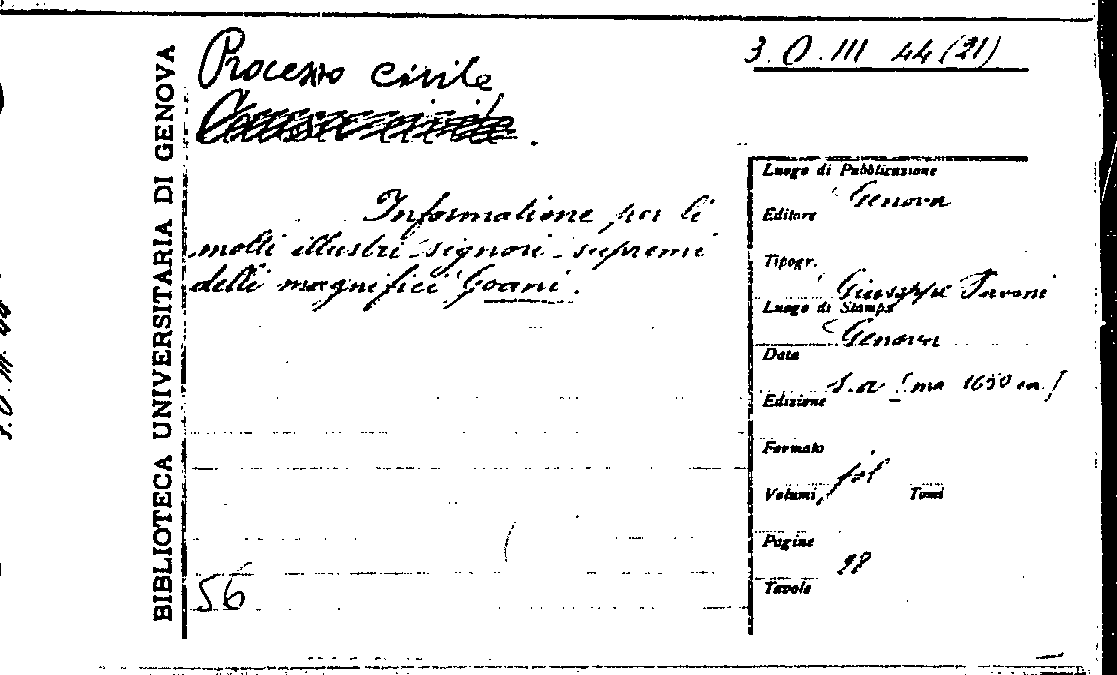 BIBLIOTECA UNIVERSITARIA DI GENOVA
3.O.III 44 (21)
Processo civile
Informatione per li
molti illustri signori supremi
delli magnifici Goani.
56
Luogo di Pubblicazione
Genova
Editore
Tipogr.
Giuseppe Pavoni
Luogo di Stampa
Genova
Data
s.a. [ma 1650 ca.]
Edizione
Formato
fol
Volumi Tomi
Pagine
28
Tavole